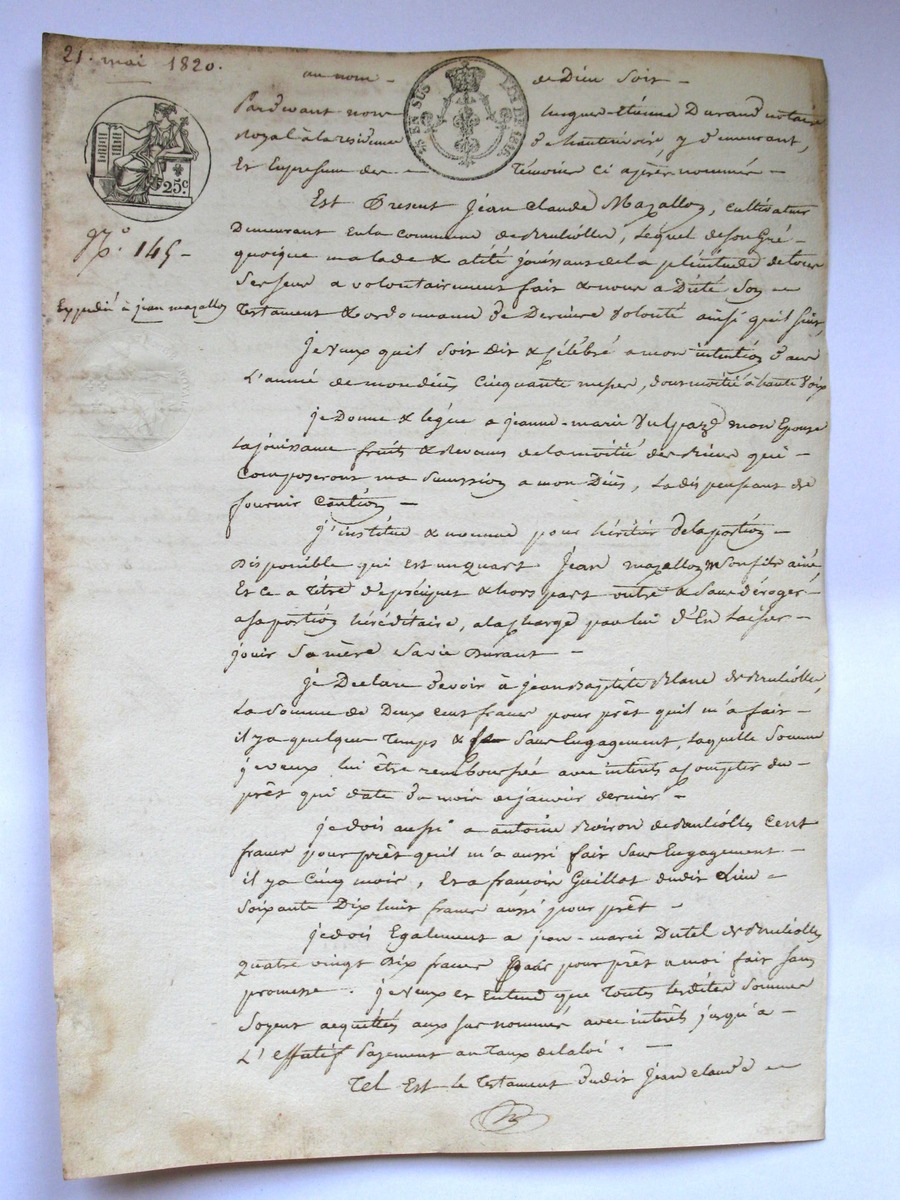 21. mai 1820.
au nom - de Dieu soit -
EN SUS
LOI DE 1816.
25c
Pardevant nous Etienne Durand notaire
Royal à la residence de , y demeurant,
Et En presence des - Témoins ci après nommés -
Est Présent Jean Claude Mazallon, cultivateur
N.o 145 -
Demeurant En la commune de , lequel de son Gré -
quoique malade & alité jouissant de la plénitude de tous
Expedié à jean mazallon
Ses sens a volontairement fait & nous a Dicté Son
Testament & ordonnance de Derniere Volonté ainsi quil suit,
Je Veux quil soit dit & Célébré a mon intention dans
L'année de mon décès Cinquante messes, dont moitié à haute Voix
je Donne & légue a jeanne-marie mon Epouse
La jouissance fruits & Revenus de la moitié des Biens qui -
Composeront ma Succession a mon Décès, La dispensant de
fournir Caution -
j'institue & nomme pour héritier de la portion -
Disponible qui est un quart Jean mazallon mon fils ainé
Et ce a titre de préciput & hors part outre & Sans déroger -
a sa portion héréditaire, a la charge par lui d'En Laisser -
jouir Sa mère Sa vie Durant -
je Declare devoir à jean Baptiste Blanc de
La Somme de Deux cent francs pour prêt quil m'a fait -
il y a quelque Temps & Sans Engagement, Laquelle Somme
je veux lui être remboursée avec intérêts a Compter du -
prêt qui date du mois de janvier dernier -
je dois aussi a antoine Roiron de Cent
francs pour prêt quil m'a aussi fait Sans Engagement -
il y a Cinq mois, Et a francois Guillot dudit Lieu -
Soixante Dix huit francs aussi pour prêt -
je dois Egalement a jean-marie Dutel de
quatre vingt Dix francs pour prêt a moi fait Sans
promesse. je Veux et Entend que Toutes Lesdites Sommes
Soyent acquittés aux sus nommés avec intérêts jusqu'à -
L'Effectif Payement au Taux de la loi. -
Tel Est le Testament dudit Jean Claude